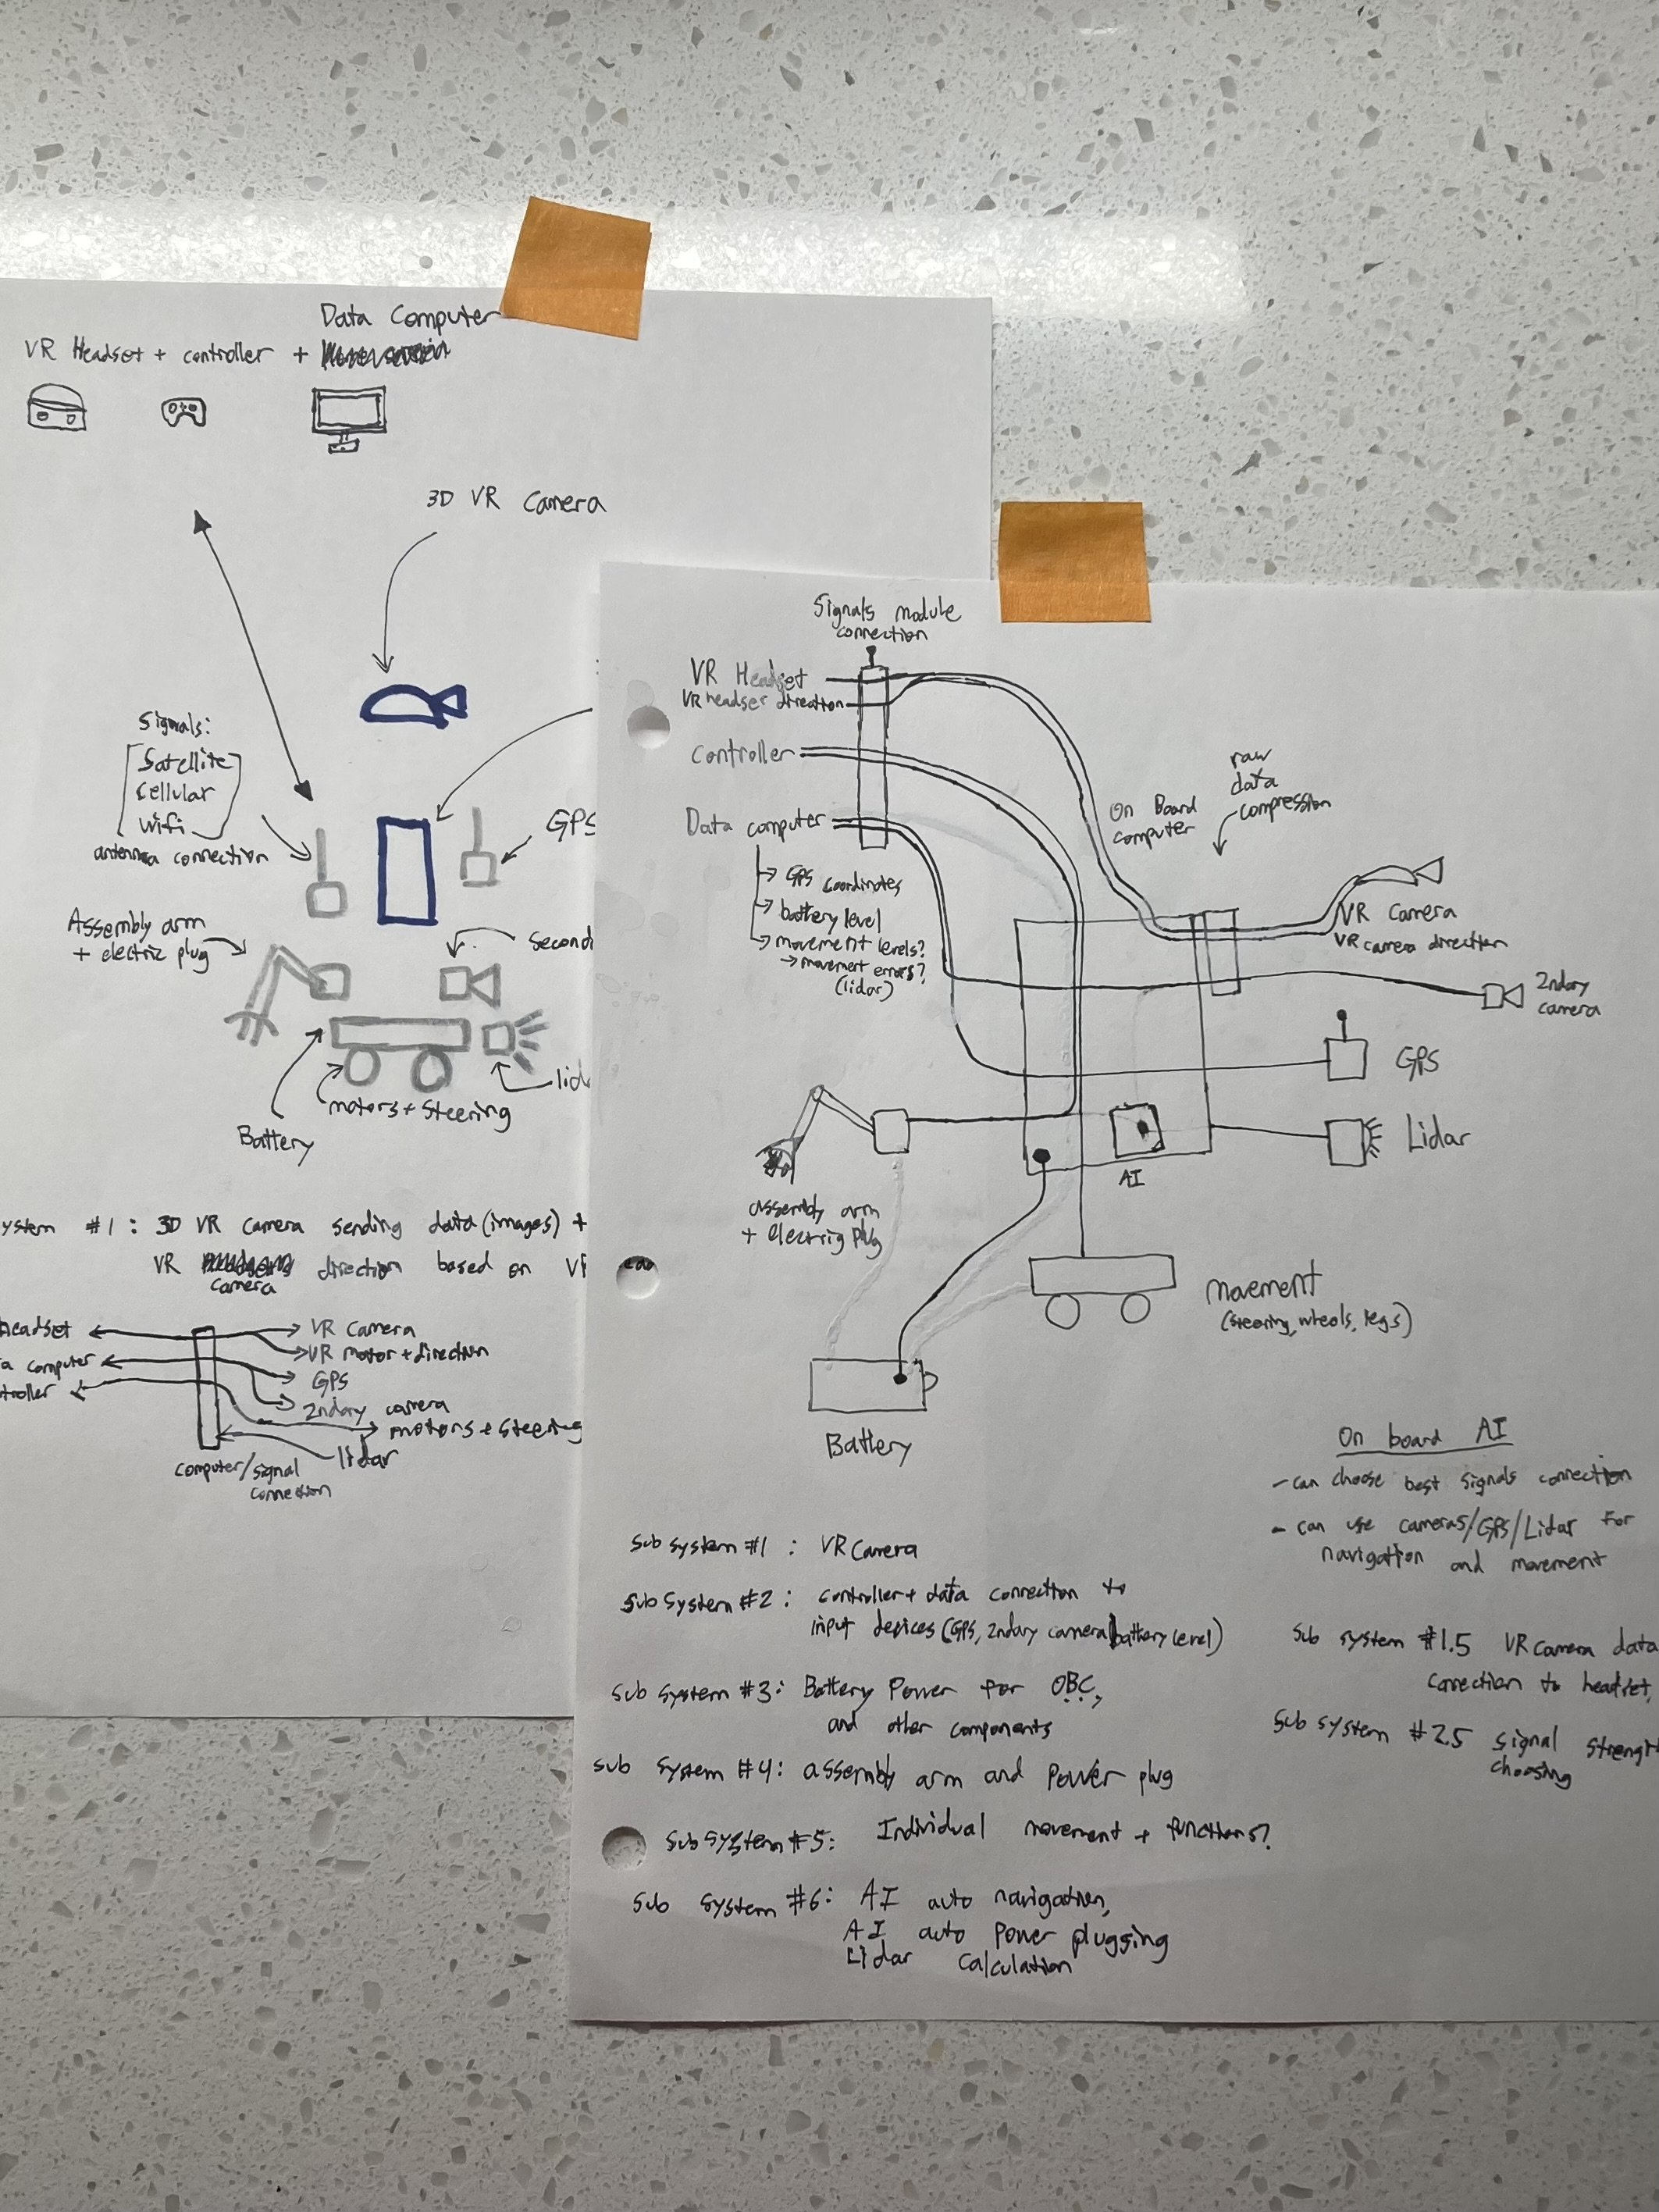 Data Computer
VR Headset + controller +
3D VR Camera
Signals:
Satellite
Cellular
Wifi
antenna connection
GPS
Assembly arm
+ electric plug
Second
lid
motors + Steering
Battery
ystem #1: 3D VR camera sending data (images) +
VR camera direction based on VR
headset
VR camera
VR motor + direction
a computer
GPS
ntroller
2ndary camera
motors + Steering
lidar
computer/signal
connection
Signals module
connection
VR Headset
VR headser direction
controller
Data computer
GPS coordinates
battery level
movement levels?
→ movement errors?
(lidar)
On Board
computer
raw
data
compression
VR Camera
VR camera direction
2ndary
camera
GPS
Lidar
AI
assembly arm
+ electrig plug
movement
(steering, wheels, legs)
Battery
On board AI
- can choose best signals connection
- can use cameras/GPS/Lidar for
navigation and movement
Sub System #1 : VR Camera
Sub System #2 : controller + data connection to
input devices (GPS, 2ndary camera battery level)
Sub System #3: Battery Power for O.B.C,
and other components
Sub System #4: assembly arm and power plug
Sub System #5: Individual movement + functions?
Sub System #6: AI auto navigation,
AI auto power plugging
Lidar calculation
Sub system #1.5 VR camera data
conection to headset,
Sub system #2.5 signal strengt
choosing